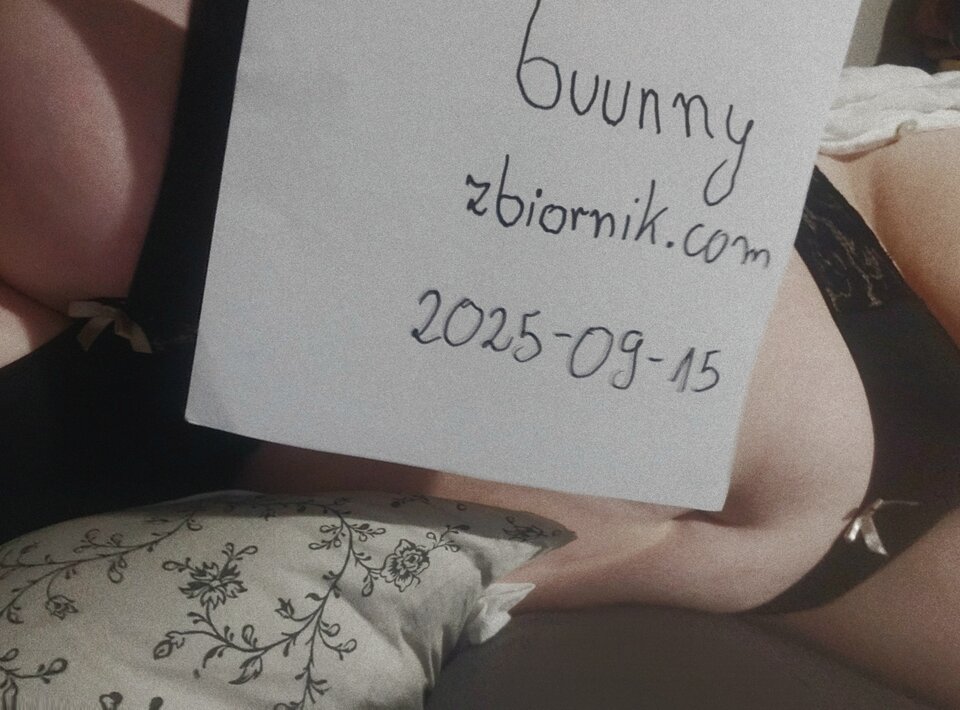 buunny
zbiornik.com
2025-09-15